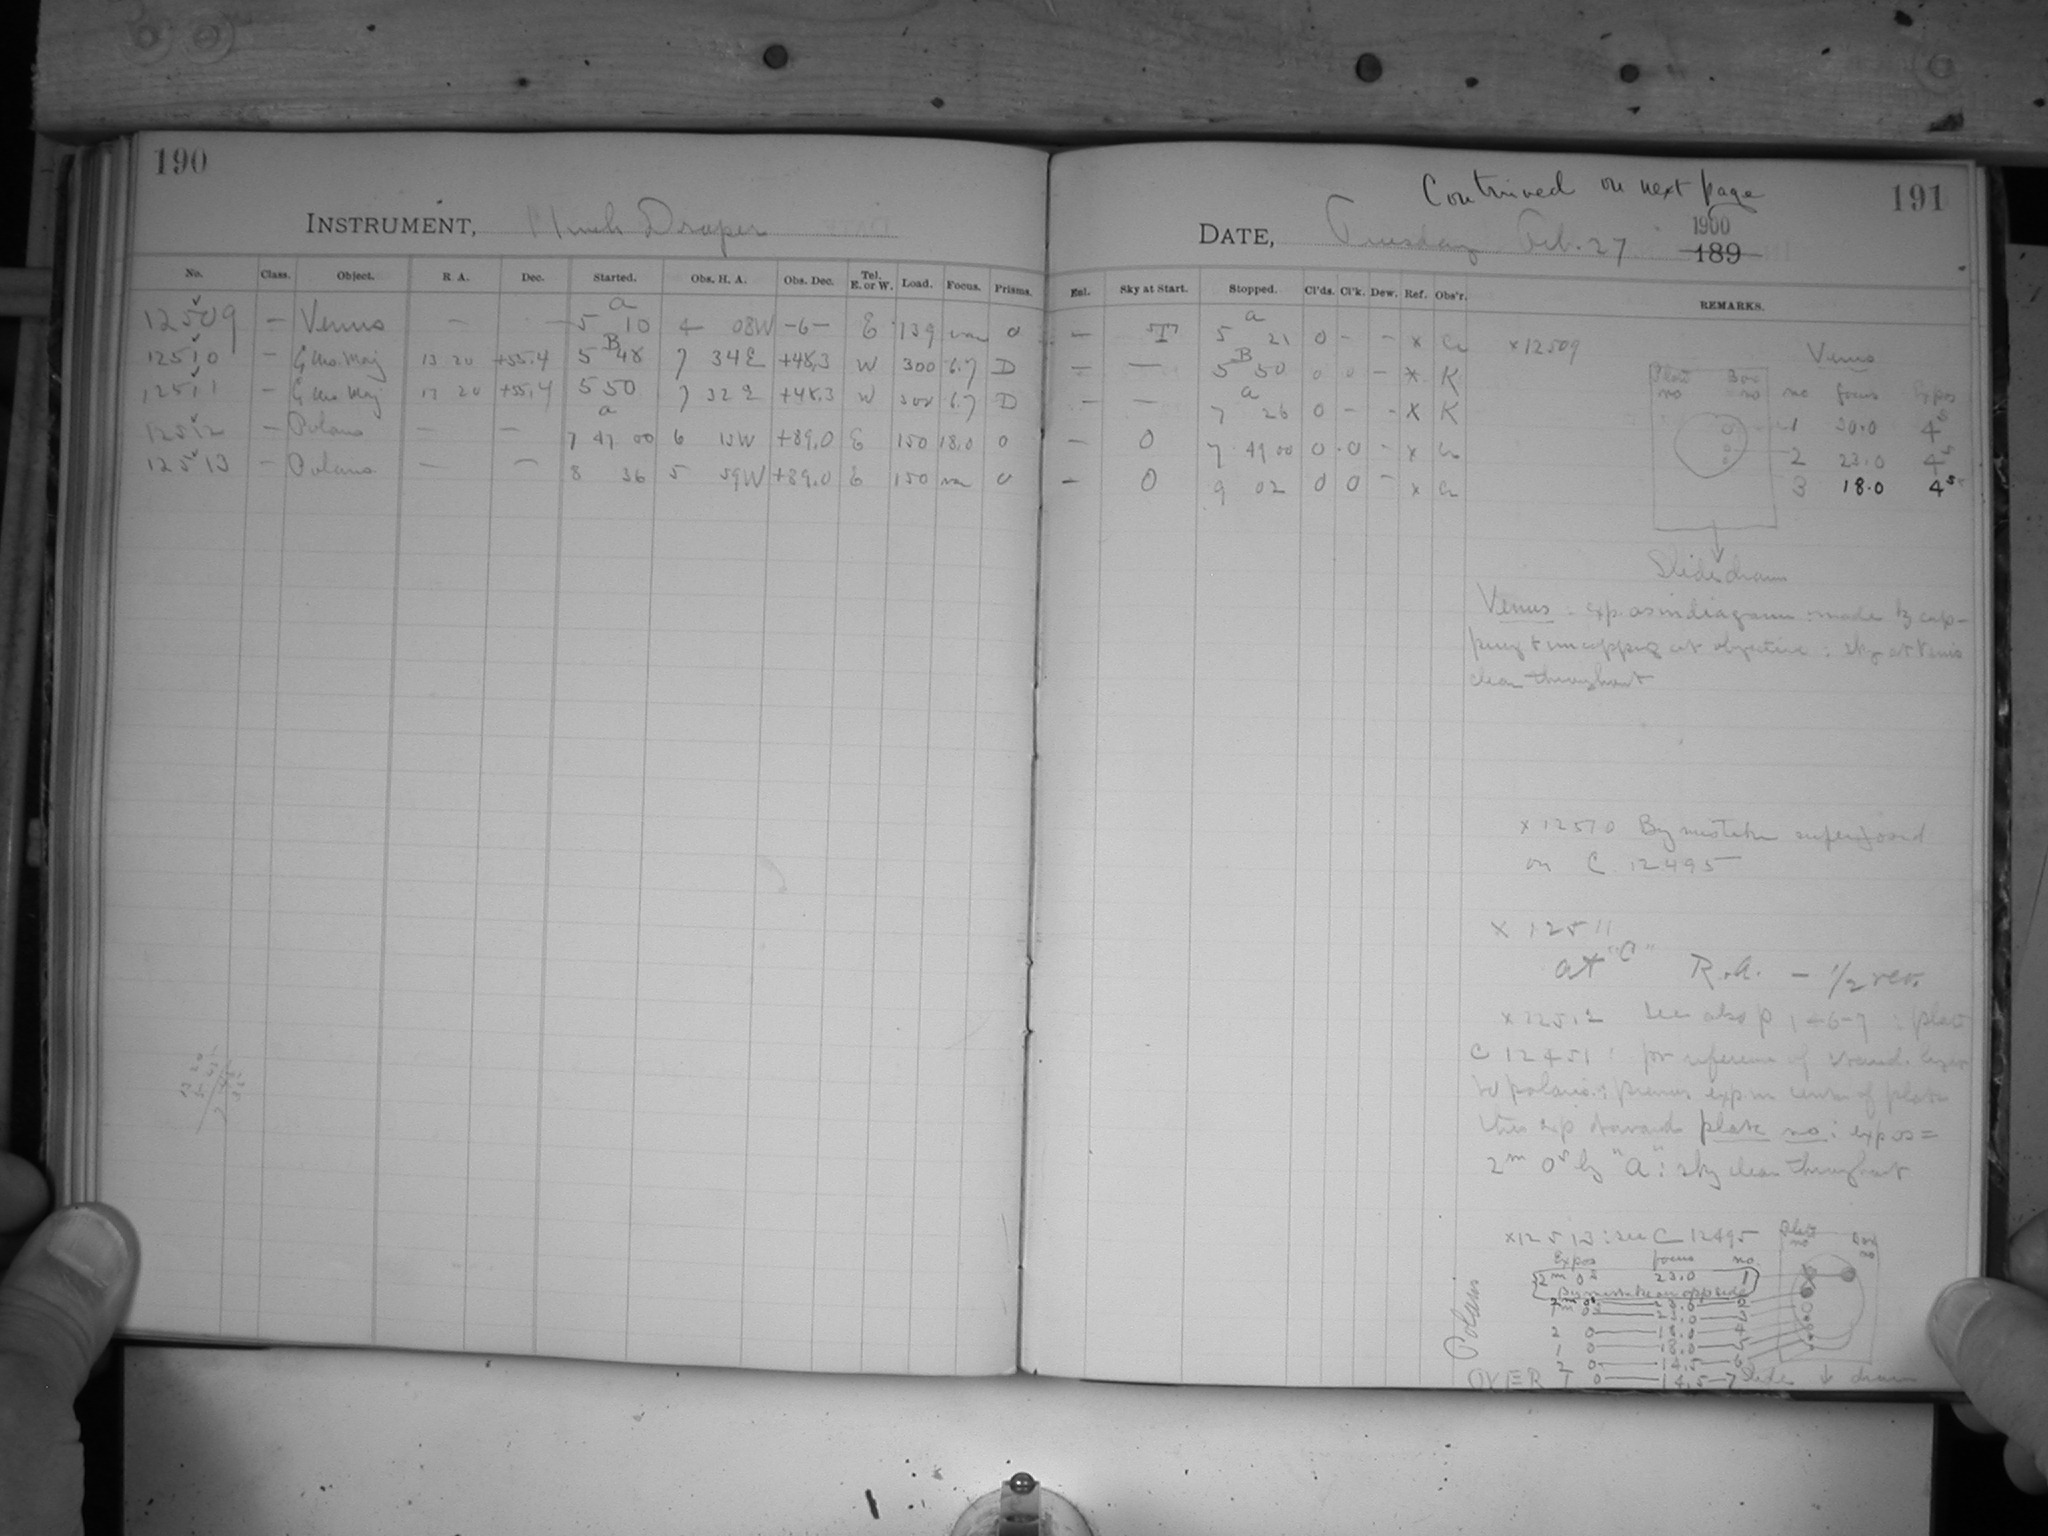 190
INSTRUMENT, 11 inch Draper
No. Class. Object. R A. Dec. Started. Obs. H. A. Obs. Dec. Tel. E. or W. Load. Focus. Prisms.
12509 — Venus — — 5 a 10 4 08W -6- E 139 var 0
12510 — ζ Urs. Maj 13 20 +55.4 5 B 48 7 34E +48.3 W 300 6.7 D
12511 — ζ Urs. Maj 13 20 +55.4 5 50 7 32E +48.3 W 300 6.7 D
12512 — Polaris — — 7 a 47 00 6 13W +89.0 E 150 18.0 0
12513 — Polaris — — 8 36 5 59W +89.0 E 150 var 0
Continued on next page 191
DATE, Tuesday Feb. 27 1900
189
Enl. Sky at Start. Stopped. Cl'ds. Cl'k. Dew. Ref. Obs'r. REMARKS.
— 5 a 21 0 - - x
— — 5 B 50 0 0 - x K
- — 7 a 26 0 - - x K
— 0 7 49 00 0 0 - x
— 0 9 02 0 0 - x
x12509 Venus
Plate no Box no no focus Expos
1 30.0 4s
2 23.0 4s
3 18.0 4s
Slide drawn
Venus: exp. as in diagram: made by cap-
ping & uncapping at objective: sky at Venus
clear throughout
x12510 By mistake superposed
on C 12495
x 12511
at "a" R.A. — 1/2 rev.
x12512 See also p 146-7: plate
C 12451: for reference of
to polaris: previous exp in center of plate
this exp towards plate no: expos =
2m 0s by "A": sky clear throughout
x12513: see C 12495 Plate no Box no
Expos focus no
2m 0s 23.0 1
By mistake on opp side
2m 0s 23.0 2
1m 0s 23.0 3
2 0 18.0 4
1 0 18.0 5
2 0 14.5 6
1 0 14.5 7 Slide drawn
Polaris
OVER